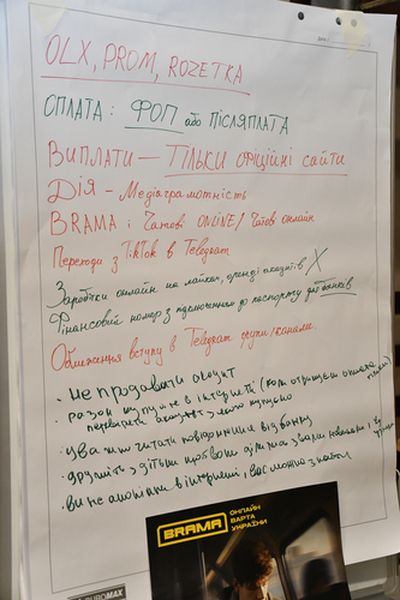 OLX, PROM, ROZETKA
ОПЛАТА: ФОП або ПІСЛЯПЛАТА
ВИПЛАТИ – ТІЛЬКИ ОФІЦІЙНІ сайти
ДІЯ – Медіаграмотність
BRAMA і Чатові ONLINE/Чатов онлайн
Переходи з TikTok в Telegram
Заробітки онлайн на лайках, оренді акаунтів X
Фінансовий номер з підключенням до паспорту для банків
Обмеження вступу в Telegram групи/канали.
· не продавати акаунт
· разом купуйте в інтернеті (коли отримуєм оплата
перевіряти акаунт з якого купуємо
· уважно читати повідомлення від банку
· дружіть з дітьми щоб вони ділилися з вами новинами і
· ви не анонімні в інтернеті, вас можна знайти
BRAMA
ОНЛАЙН
ВАРТА
УКРАЇНИ